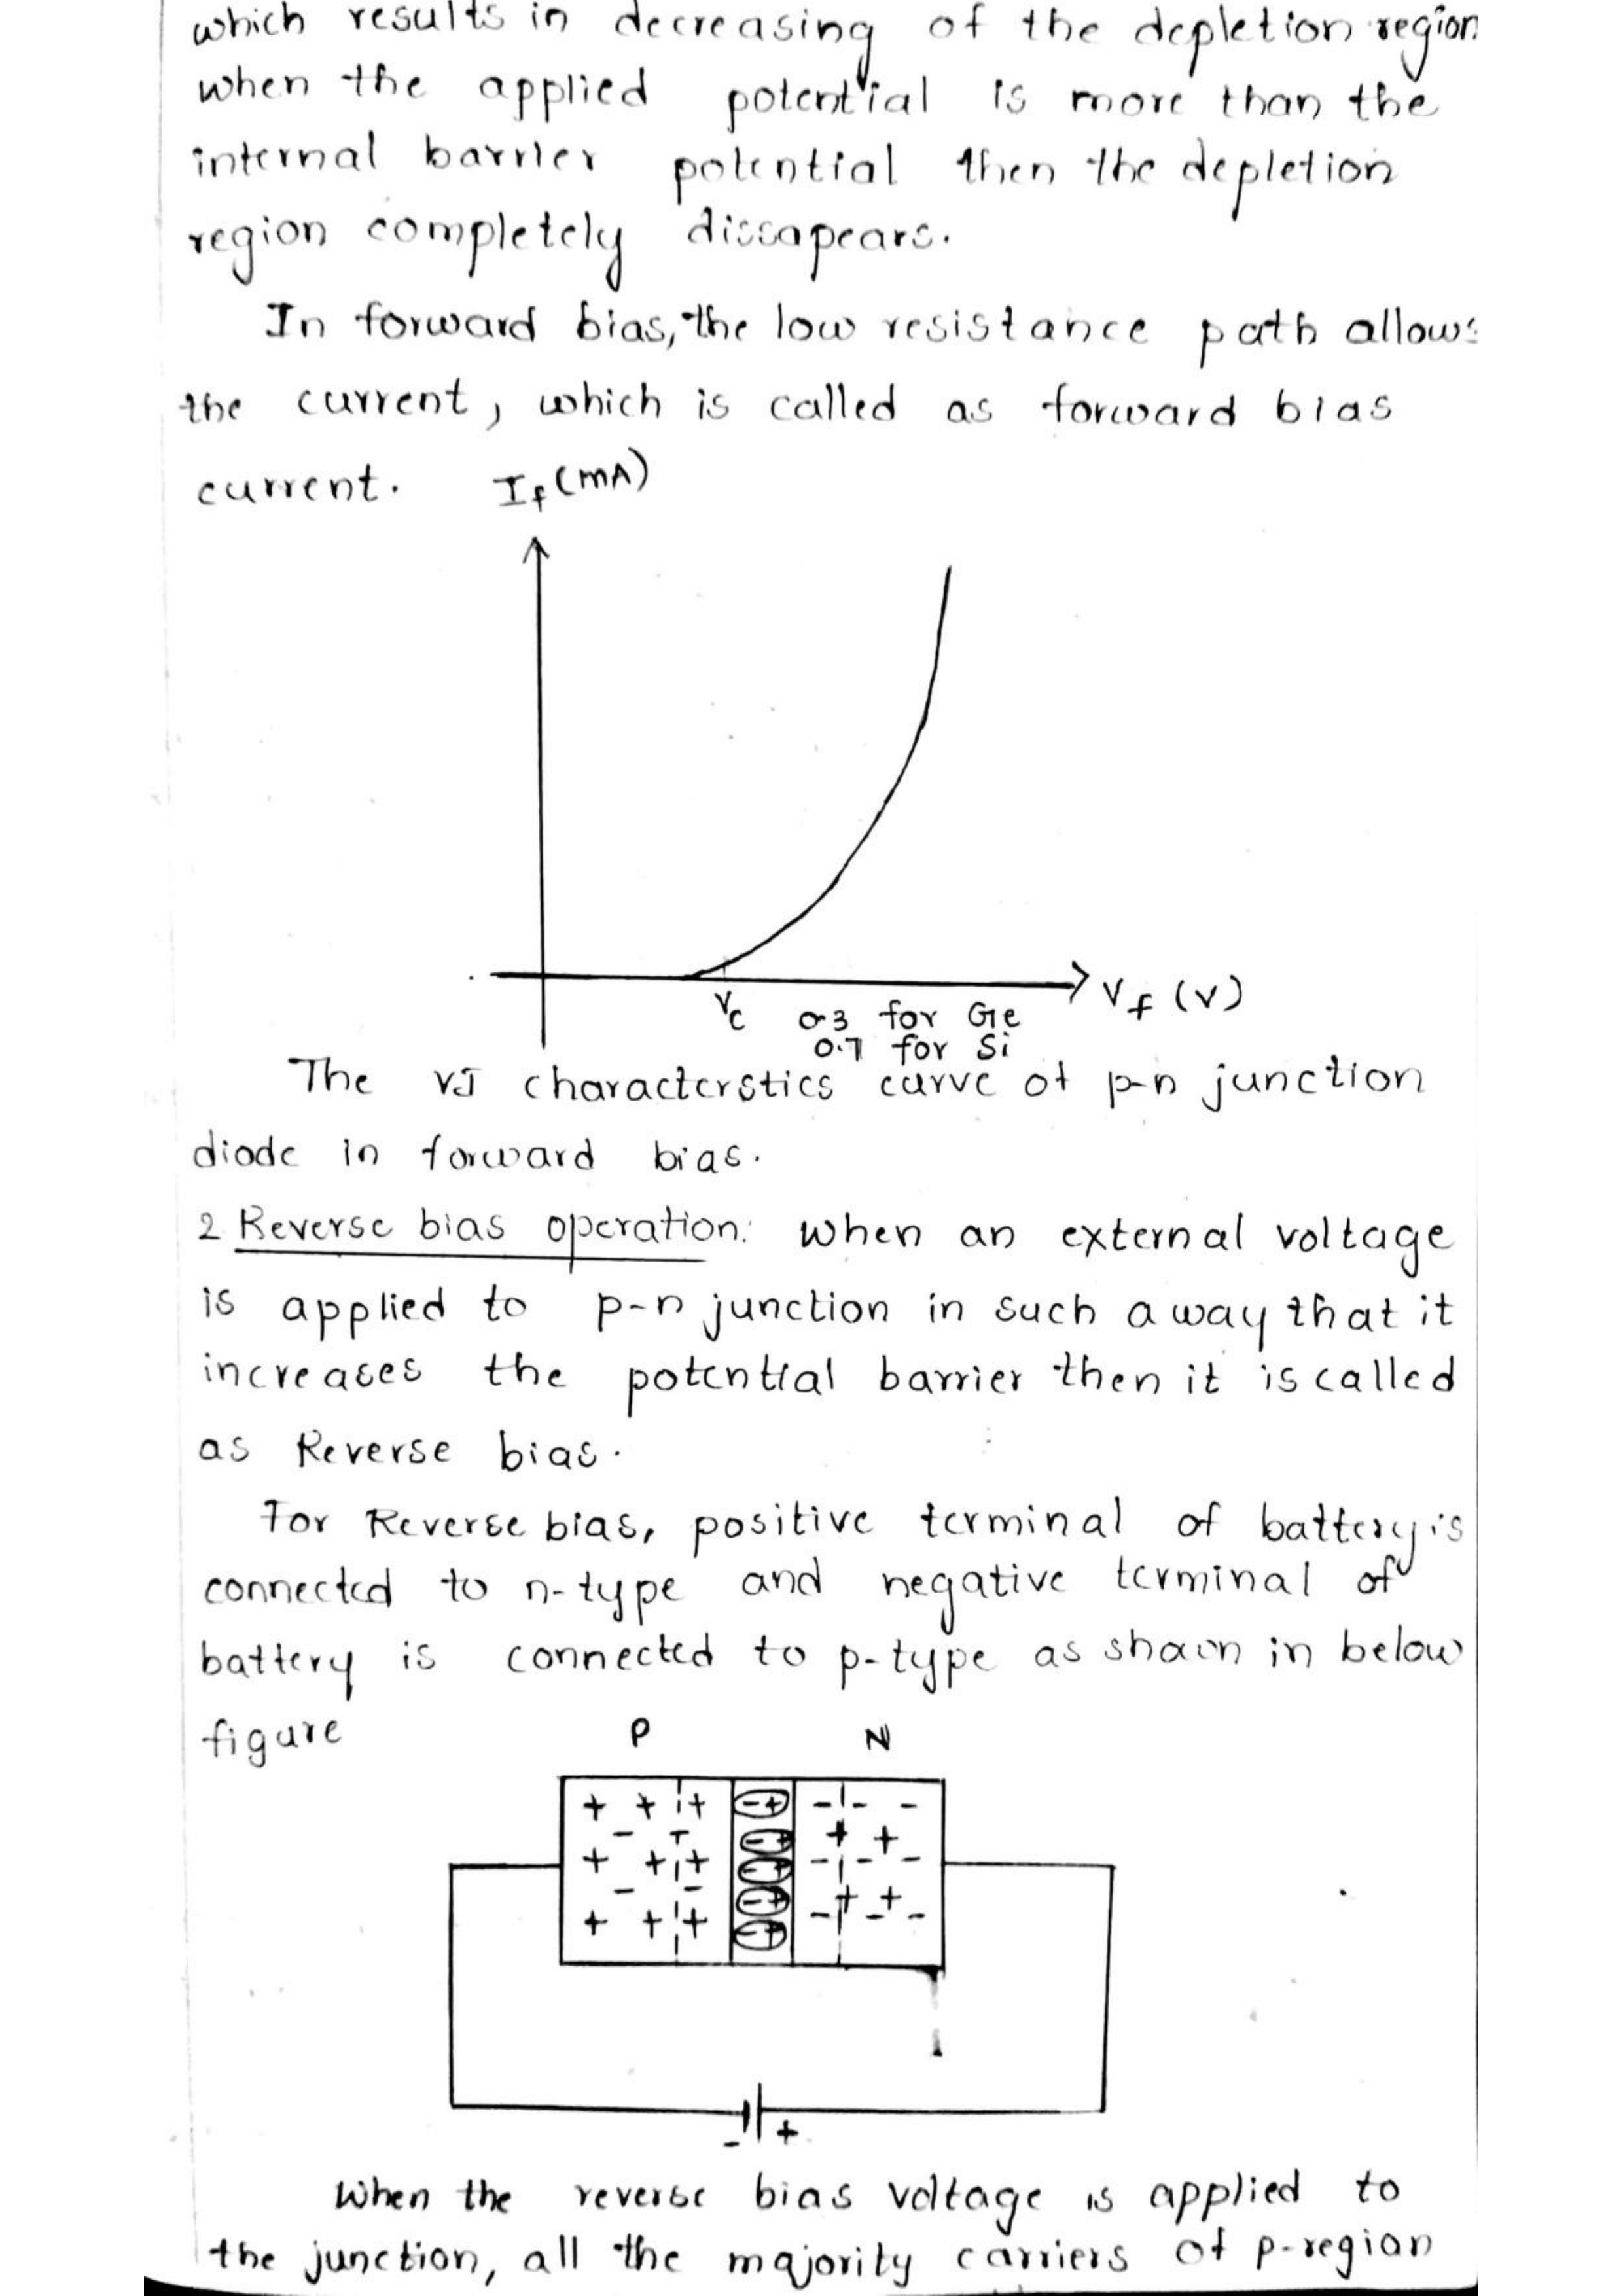 which results in decreasing of the depletion region
when the applied potential is more than the
internal barrier potential then the depletion
region completely dissapears.
In forward bias, the low resistance path allows
the current, which is called as forward bias
current. If (mA)
Vf (V)
Vc 0.3 for Ge
0.7 for Si
The VI characterstics curve of p-n junction
diode in forward bias.
2 Reverse bias operation: when an external voltage
is applied to p-n junction in such a way that it
increases the potential barrier then it is called
as Reverse bias.
For Reverse bias, positive terminal of battery is
connected to n-type and negative terminal of
battery is connected to p-type as shown in below
figure P N
+ + + - + - - -
- - + +
+ + + - + - - -
- - - + + +
+ + + - + - - -
- +
- +
When the reverse bias voltage is applied to
the junction, all the majority carriers of p-region